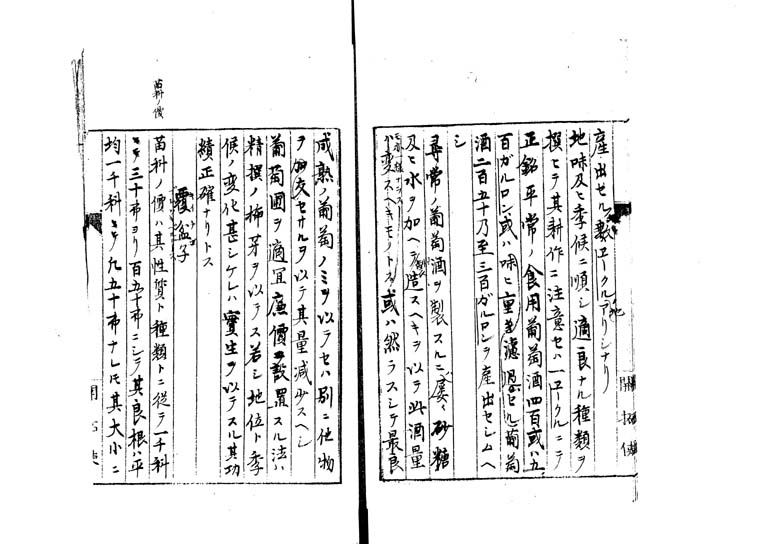 産出セル数ヱークル地アリシナリ
地味及ヒ季候ニ順シ適良ナル種類ヲ
撰ヒテ其耕作ニ注意セハ一ヱークルニテ
正銘平常ノ食用葡萄酒四百或ハ五
百ガルロン或ハ味ヒ重キ濾過セル葡萄
酒二百五十乃至三百ガルロンヲ産出セシムヘ
シ
尋常ノ葡萄酒ヲ製スルニハ屡々砂糖
及ヒ水ヲ加ヘテ製造スヘキヲ以テ此酒量
変スヘキモノトス或ハ然ラスシテ最良
開拓使
成熟ノ葡萄ノミヲ以テセハ別ニ他物
ヲ加交セサルヲ以テ其量減少スヘシ
葡萄圃ヲ適宜廉價ニ設置スル法ハ
精撰ノ挿芽ヲ以テス若シ地位ト季
候ノ変化甚シケレハ實生ヲ以テスル其功
績正確ナリトス
覆盆子
苗ノ價
苗科ノ價ハ其性質ト種類トニ従テ一千科
ニテ三十弗ヨリ百五十弗ニシテ其良根ハ平
均一千科ニテ凡五十弗ナレトモ其大小ニ